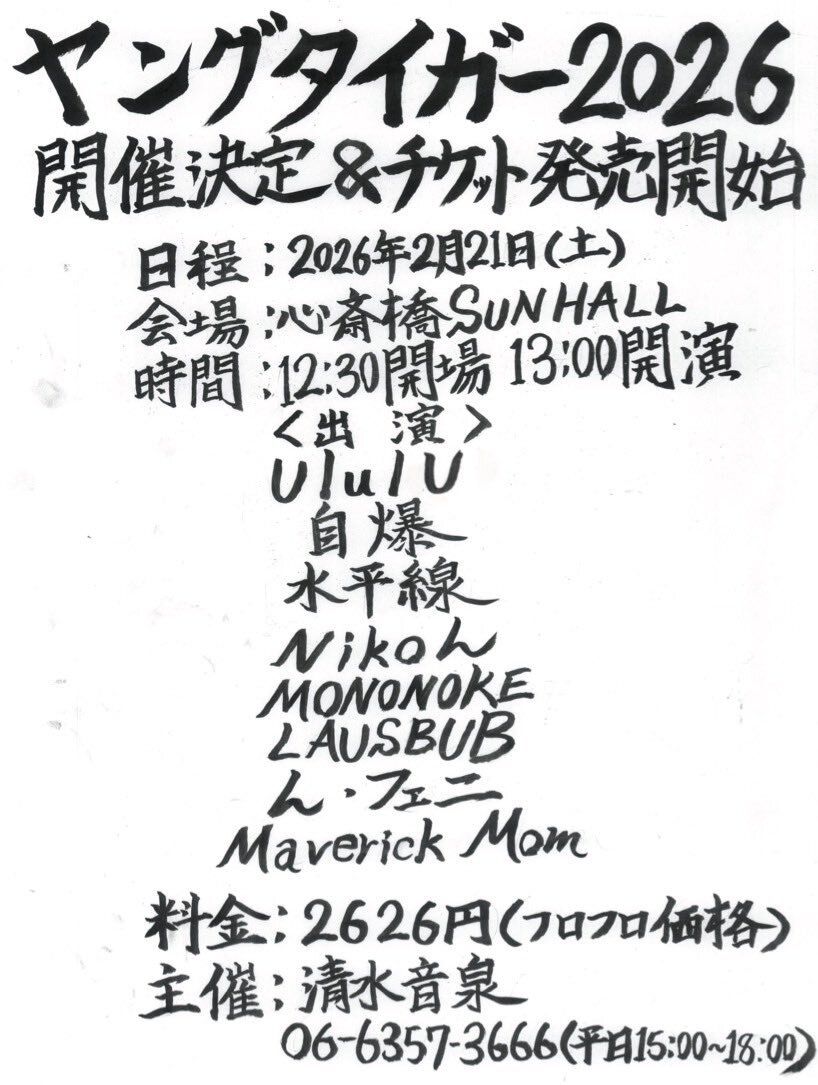 ヤングタイガー2026
開催決定&チケット発売開始
日程:2026年2月21日(土)
会場:心斎橋SUNHALL
時間:12:30開場 13:00開演
<出 演>
UlulU
自爆
水平線
Nikoん
MONONOKE
LAUSBUB
ん・フェニ
Maverick Mom
料金:2626円(フロフロ価格)
主催:清水音泉
06-6357-3666(平日15:00~18:00)